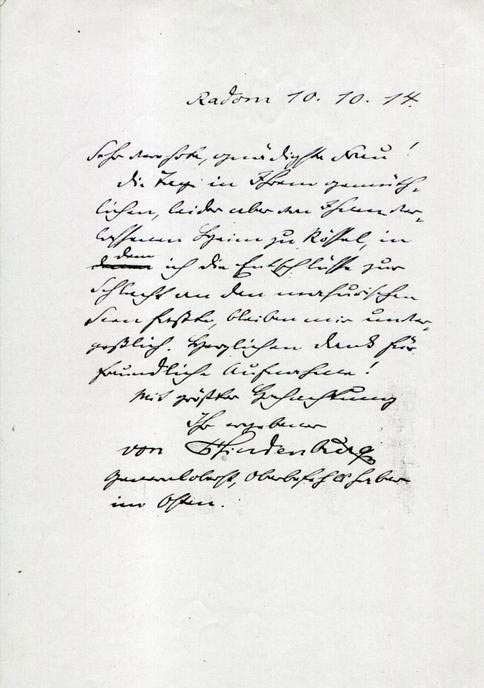 Radom 10. 10. 14.
Sehr verehrte, gnädigste Frau!
Die Tage in Ihrem gemüth-
lichen, leider aber von Ihnen ver-
lassenen Heim zu Rössel, in
dem ich die Entschlüsse zur
Schlacht an den masurischen
Seen faßte, bleiben mir unver-
geßlich. Herzlichen Dank für
freundliche Aufnahme!
Mit größter Hochachtung
Ihr ergebener
von Hindenburg
Generaloberst, Oberbefehlshaber
im Osten.